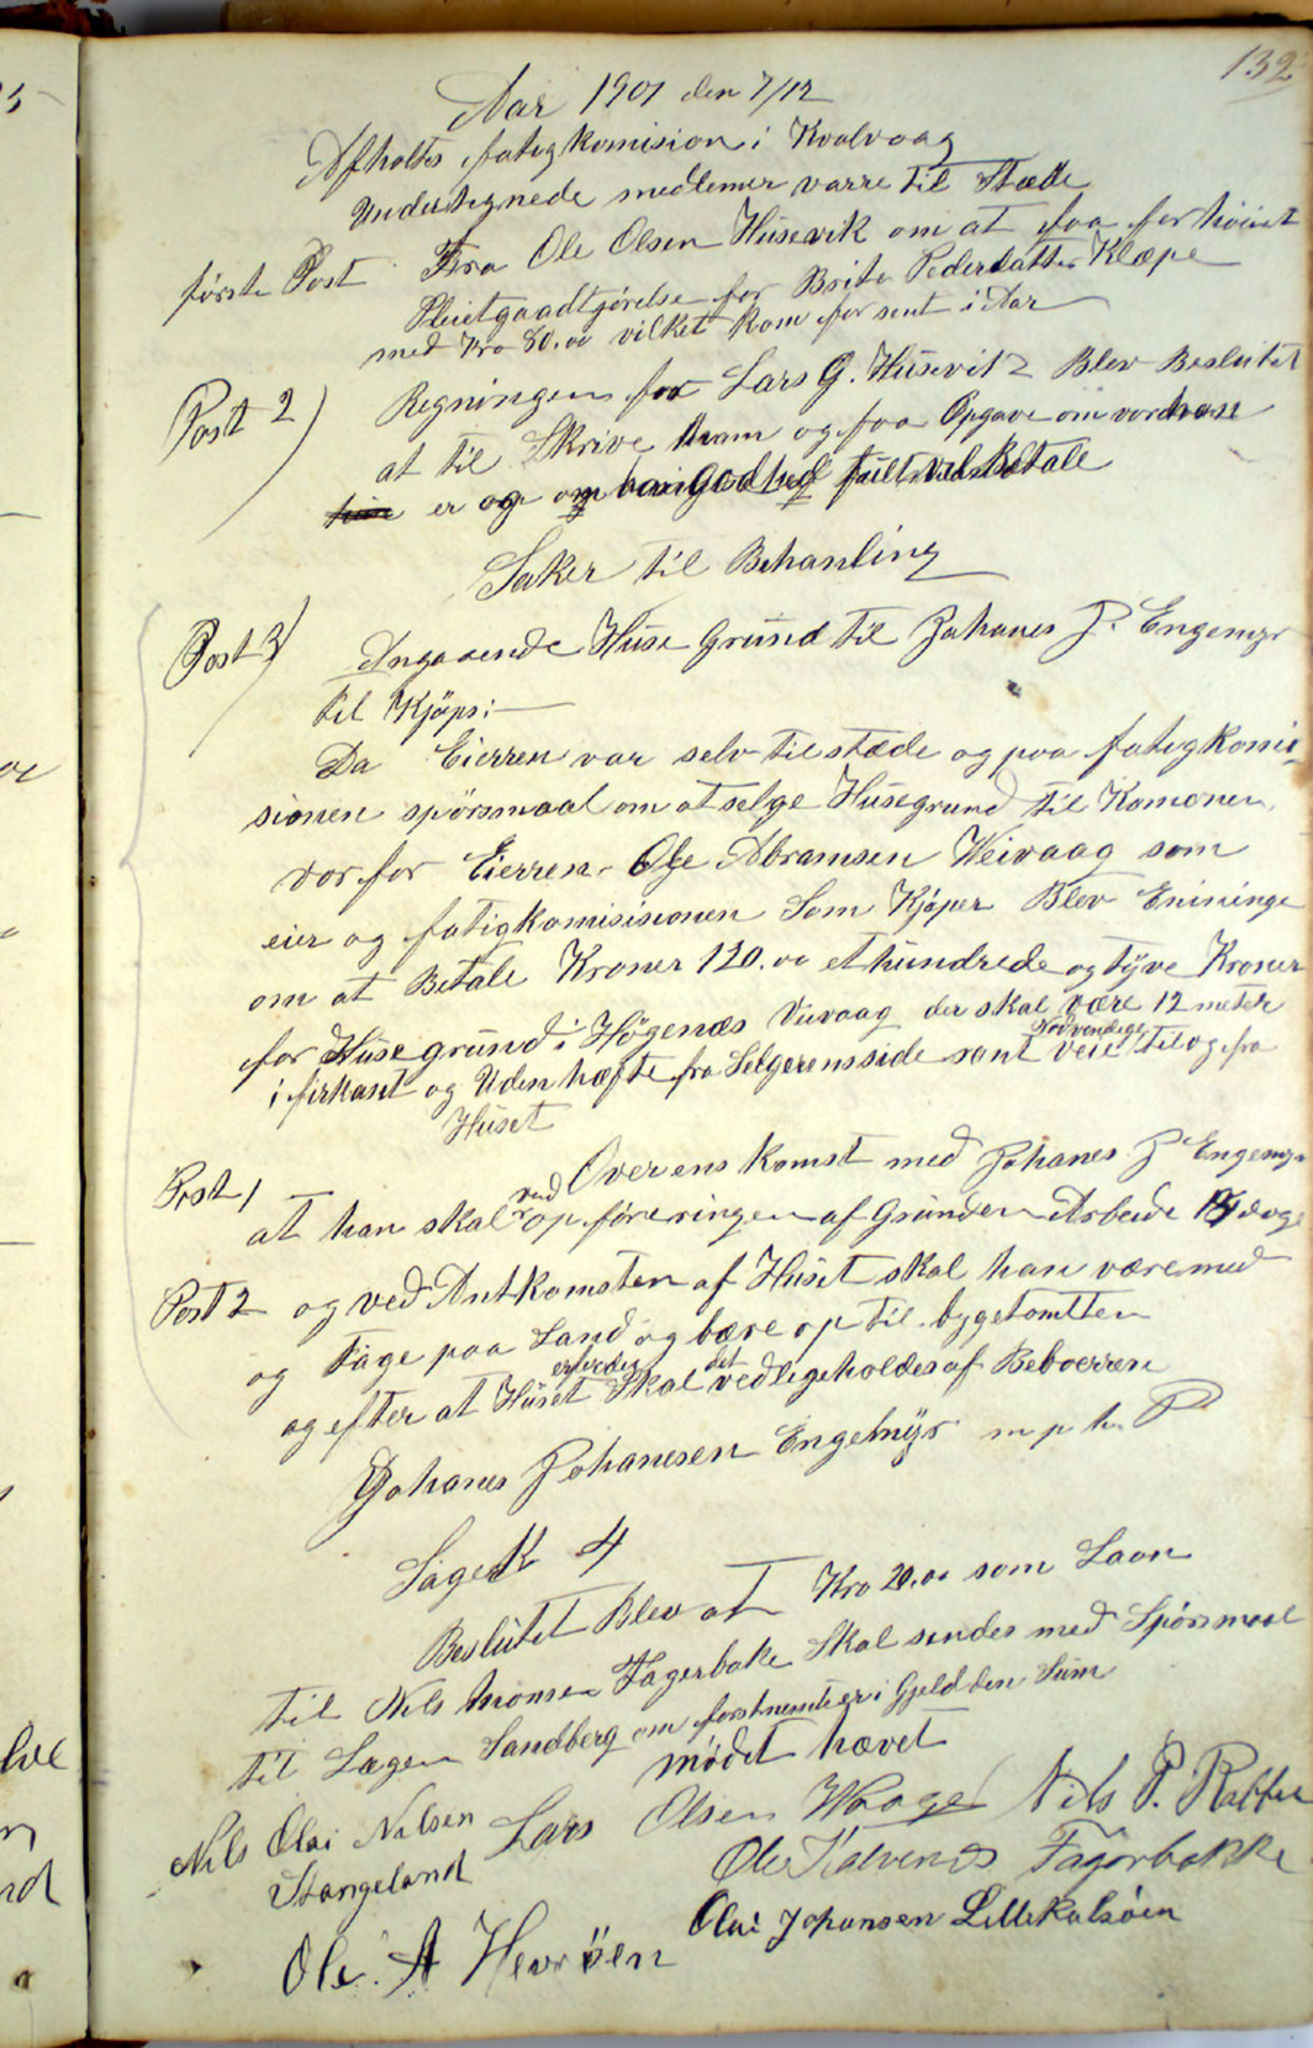 132
Aar 1901 den 7/12
Afholtes fatigkomision i Kvalvaag
Undertegnede medlemer varre til Stæde
første Post Fra Ole Olsen Husevik om at faa forhöiet
Pleietgaadtgjörelse for Brita Pedersdatter Klæpe
med Kro 80.00 vilket kom for sent i Aar
Post 2) Regningen for Lars G. Husevik Blev Beslutet
at til Skrive ham og faa Opgave om vordann
er og om han godhed fult vil Betale
Saker til Behanling
Post 3) Angaaende Huse Grund til Johanes J. Engemyr
til Kjöps:
Da Eierren var selv tilstæde og paa fatigkomi-
sionen spörsmaal om at selge Husegrund til Komonen
vorfor Eierren Ole Abramsen Weivaag som
eier og fatigkomisisionen Som Kjöper Blev Eininge
om at Betale Kroner 120.00 et hundrede og tyve Kroner
for Husegrund i Högenæs Veivaag der skal være 12 meter
i firkant og Uden hæfte fra Selgerens side samt Nödvendige veie til og fra
Huset
Post 1 Overenskomst med Johanes J Engemyr
at han skal ved opföreringen af Grunden Arbeide dage
Post 2 og ved Ankomsten af Huset skal han være med
og Tage paa Land og bære op til bygetomtten
og efter at Huset erferdig Skal det vedligeholdes af Beboerren
Johanes Johanesen Engemyr m p h. P
Sagek 4
Beslutet Blev at Kro 20.00 som Laan
til Nils Monsen Fagerbake Skal sendes med Spörsmaal
til Lagen Sandberg om forstnemte er i Gjeld den Sum
mödet hævet
Nils Olai Nilsen Stangeland
Lars Olsen Waage
Nils P. Rabben
Ole Halvences Fagerbakke
Olai Johansen Lillekalsöen
Ole. A Hevröen